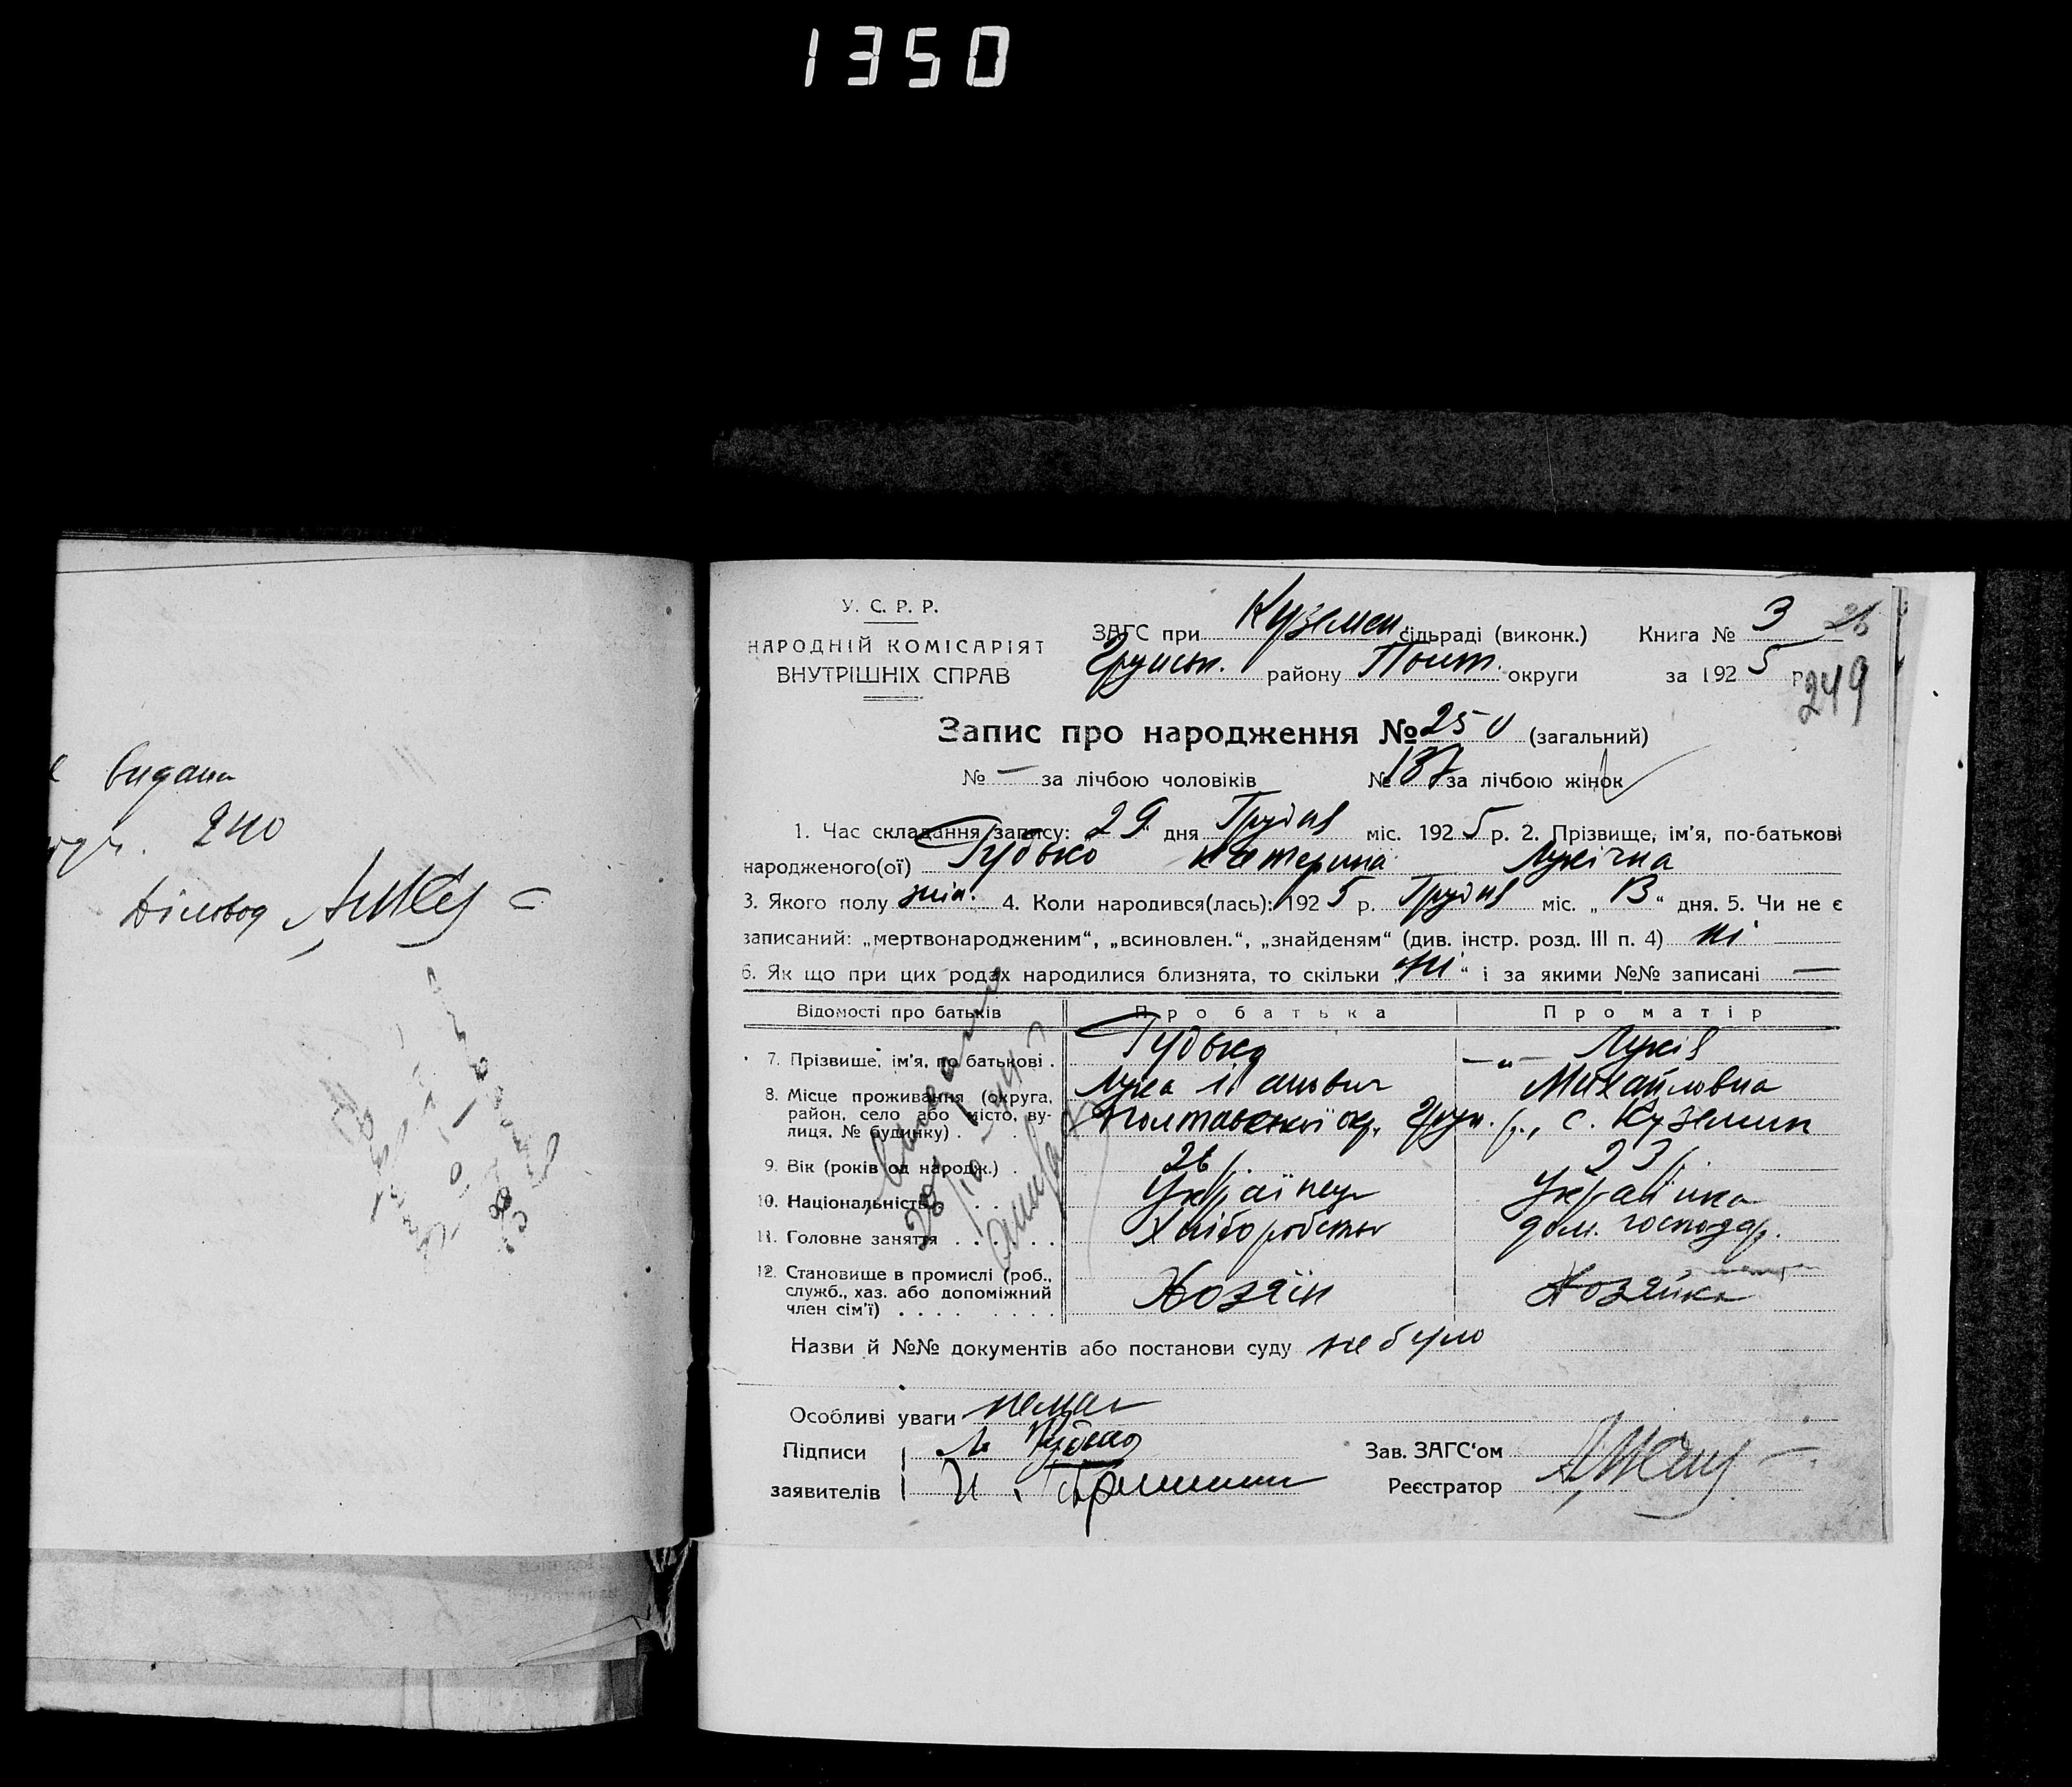 1350
видана
240
Діловод
У. С. Р. Р.
НАРОДНІЙ КОМІСАРІЯТ
ВНУТРІШНІХ СПРАВ
ЗАГС при Куземен. сільраді (виконк.) Книга № 3
Грунськ. району Полт. округи за 1925 р.
249
Запис про народження № 250 (загальний)
№ — за лічбою чоловіків № 137 за лічбою жінок
1. Час складання запису: „29“ дня Грудня міс. 1925 р. 2. Прізвище, ім'я, по-батькові
народженого(ої) Гудько Катерина Лукічна
3. Якого полу жін. 4. Коли народився(лась): 1925 р. Грудня міс. „13“ дня. 5. Чи не є
записаний: „мертвонародженим“, „всиновлен.“, „знайденям“ (див. інстр. розд. III п. 4) ні
6. Як що при цих родах народилися близнята, то скільки „ні“ і за якими №№ записані —
Відомості про батьків Про батька Про матір
7. Прізвище, ім'я, по батькові . Гудько —„—
Лука Михайловна
8. Місце проживання (округа, район, село або місто, вулиця, № будинку) . Полтавської окр. Грун. р., с. Куземин
9. Вік (років од народж.) . 26 р. 23 р.
10. Національність Українець Українка
11. Головне заняття . . . . . Хліборобство дом. господар.
12. Становище в промислі (роб.,
служб., хаз. або допоміжний
член сім'ї) . . . . . . . . Хозяїн Хозяйка
Назви й №№ документів або постанови суду не було
Особливі уваги немає
Підписи Л. Гудько Зав. ЗАГС'ом
заявителів Реєстратор